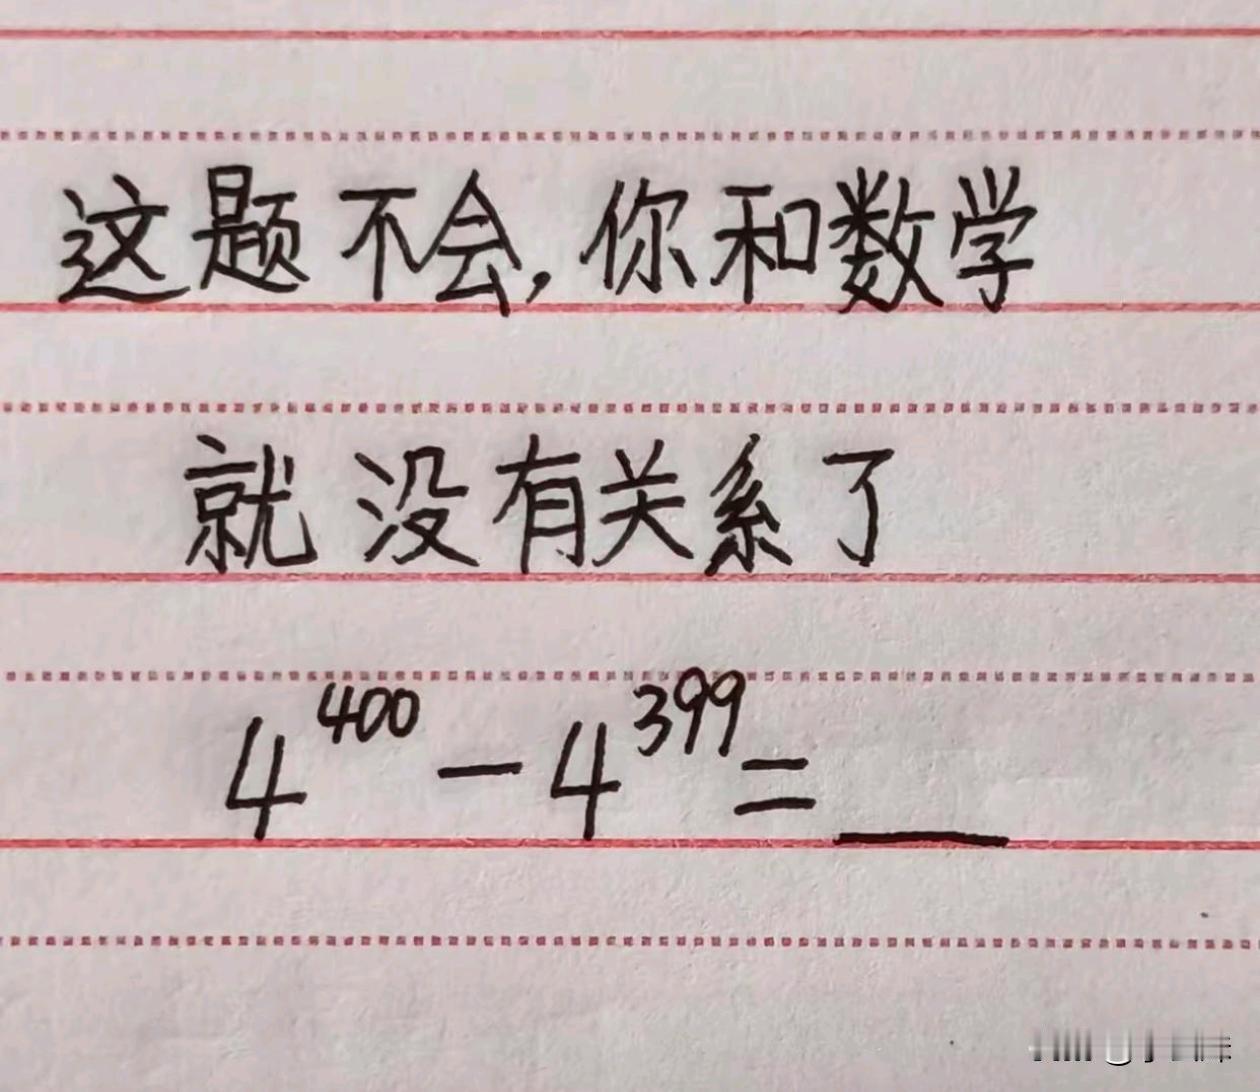 这题不会,你和数学
就没有关系了
4^400 - 4^399 = ___